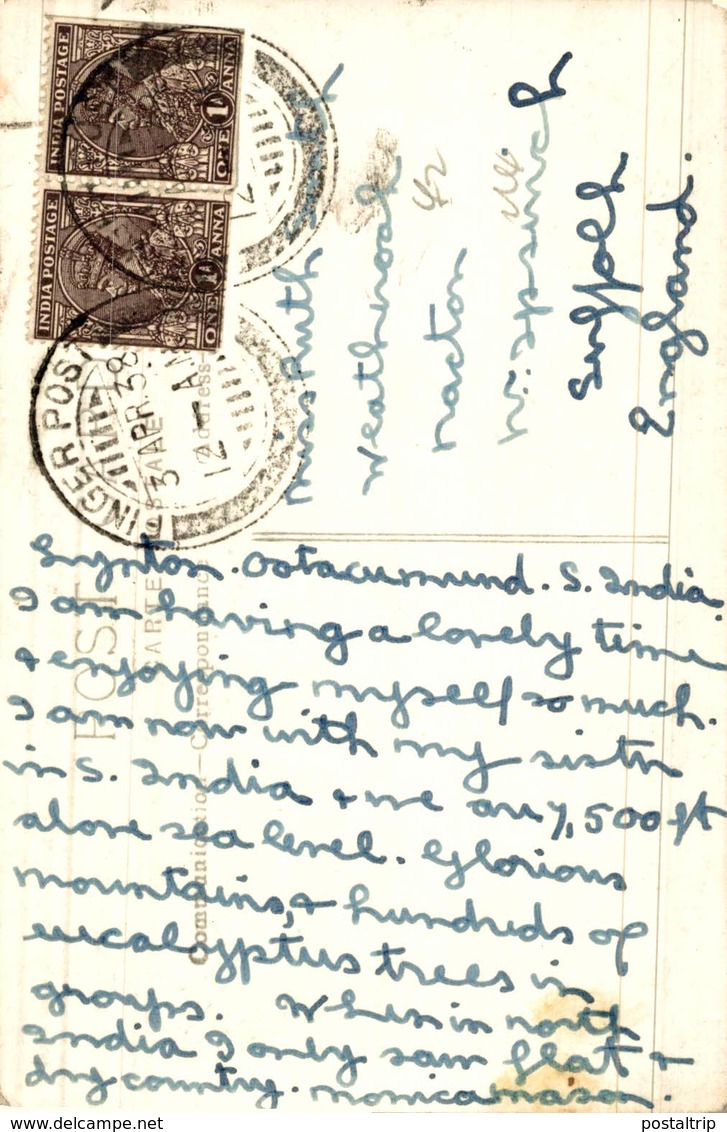 INDIA POSTAGE
1
ONE ANNA
INDIA POSTAGE
1
ONE ANNA
FINGER POST
3 APR 38
12 - AM
12
POST
CARTE
Communication—Correspondance
Address
Lynton. Ootacumund. S. India.
I am having a lovely time
& enjoying myself so much.
I am now with my sister
in S. India & we are 7,500 ft
above sea level. Glorious
mountains, & hundreds of
eucalyptus trees in
groups. When in north
India I only saw flat &
dry country. Monica Mason.
Miss Ruth
Nacton
Nr. Ipswich
Suffolk
England.
postaltrip